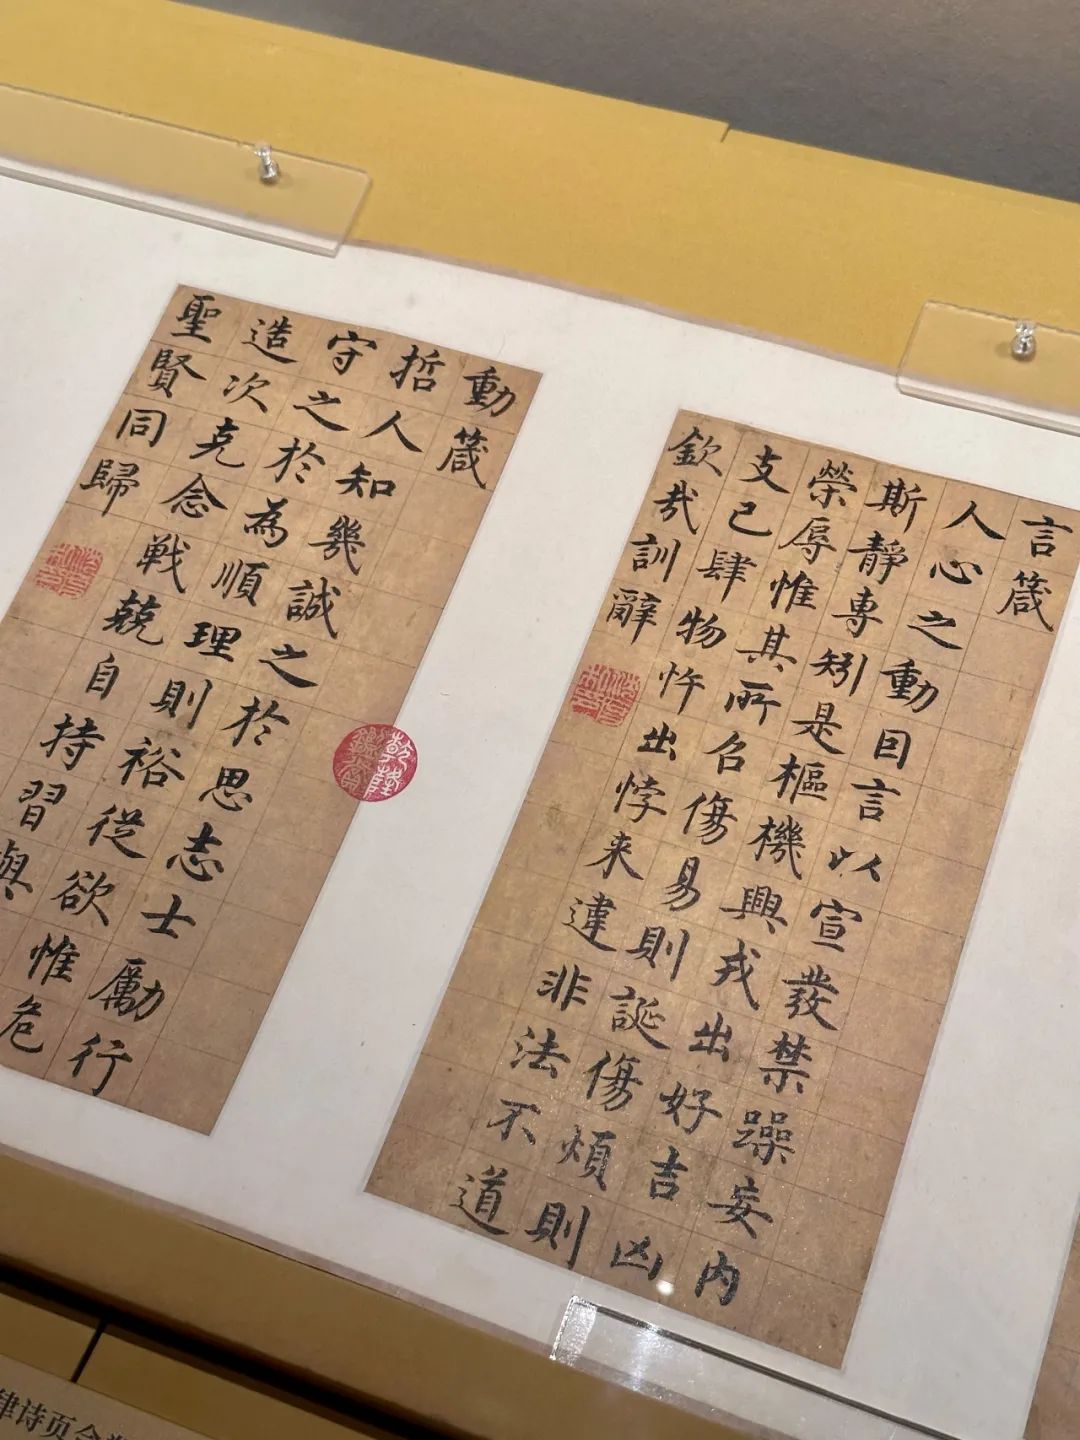 言箴
人心之動囙言以宣發禁躁妄內
斯靜專矧是樞機興戎出好吉凶
榮辱惟其所召傷易則誕傷煩則
支己肆物忤出悖来違非法不道
欽哉訓辭
動箴
哲人知幾誠之於思志士勵行
守之於為順理則裕從欲惟危
造次克念戦兢自持習與
聖賢同歸
乾隆鑑賞
律诗页合